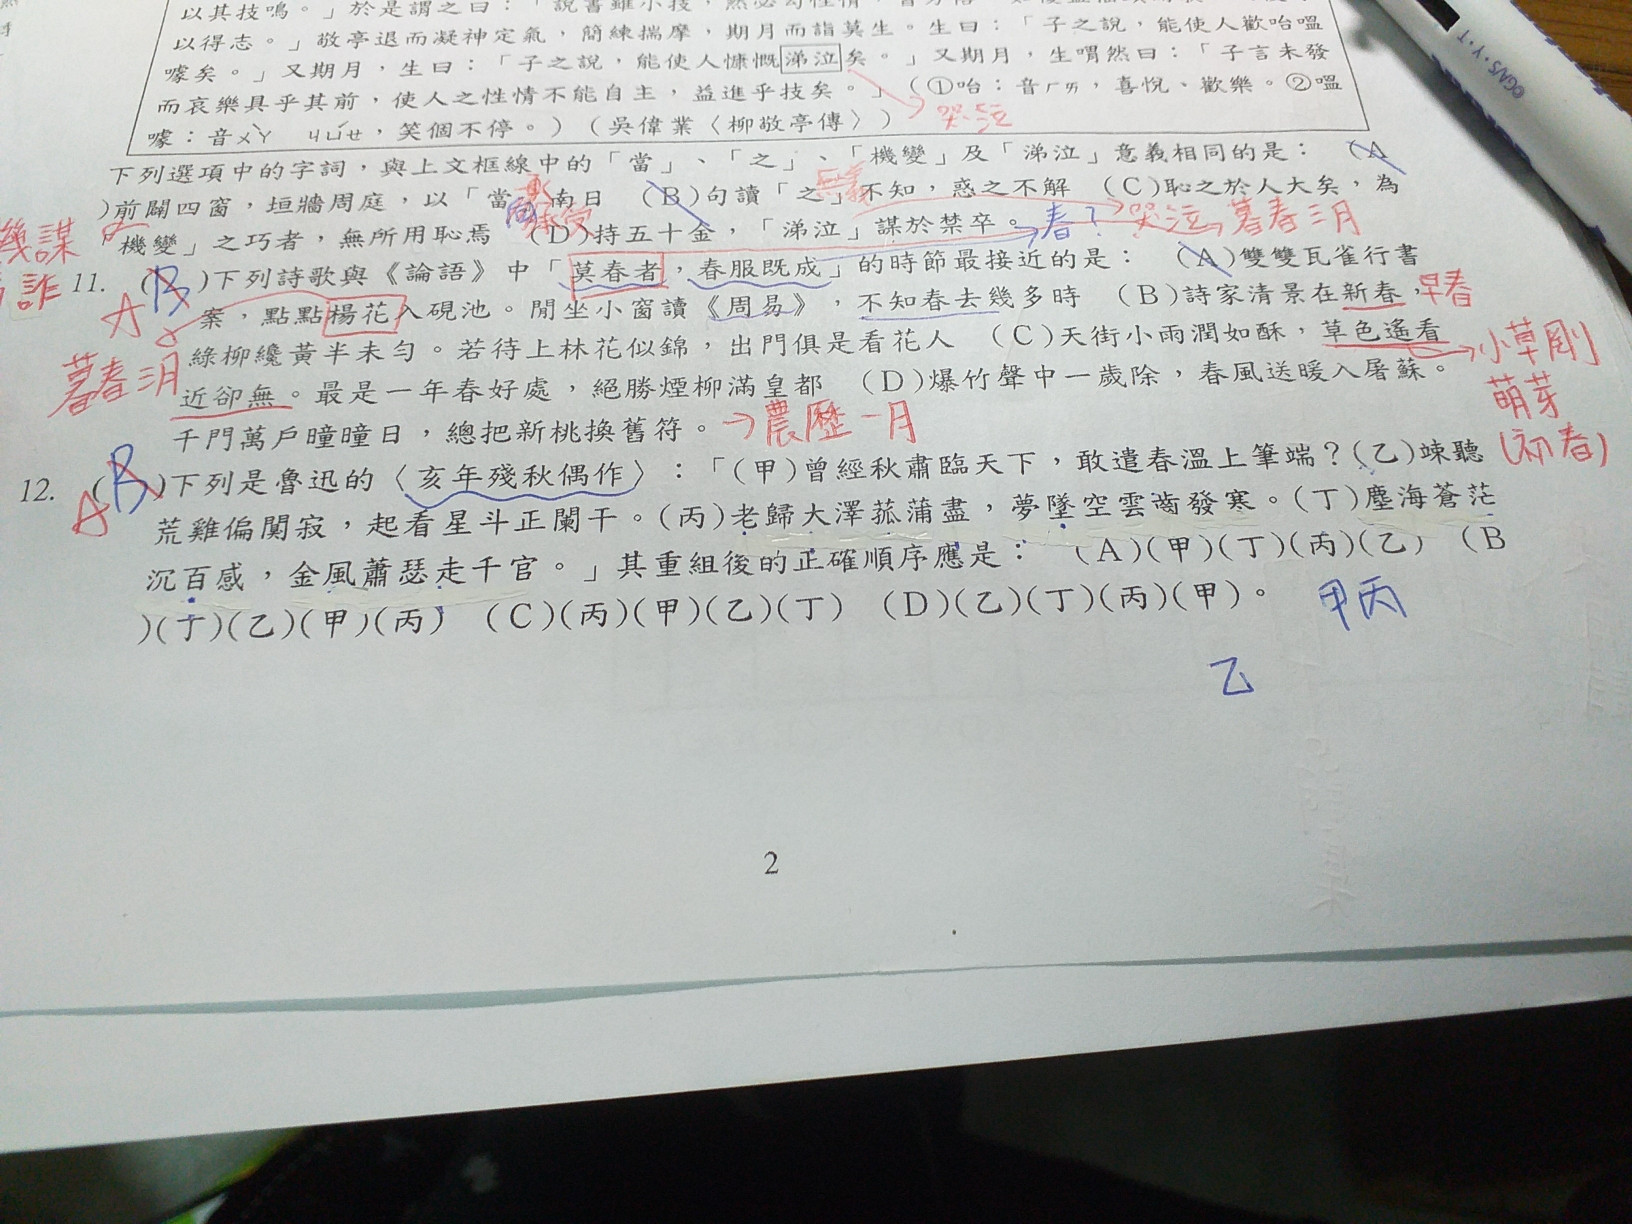 以其技鳴。」於是謂之曰:「說書雖小技,然必勾性情,
以得志。」敬亭退而凝神定氣,簡練揣摩,期月而詣莫生。生曰:「子之說,能使人歡咍嗢
噱矣。」又期月,生曰:「子之說,能使人慷慨涕泣矣。」又期月,生喟然曰:「子言未發
而哀樂具乎其前,使人之性情不能自主,益進乎技矣。」(①咍:音ㄏㄞ,喜悅、歡樂。②嗢
噱:音ㄨㄚˋ ㄐㄩㄝˊ,笑個不停。)(吳偉業〈柳敬亭傳〉)
哭泣
下列選項中的字詞,與上文框線中的「當」、「之」、「機變」及「涕泣」意義相同的是: (A
)前闢四窗,垣牆周庭,以「當」南日 (B)句讀「之」不知,惑之不解 (C)恥之於人大矣,為
「機變」之巧者,無所用恥焉 (D)持五十金,「涕泣」謀於禁卒。
春? 哭泣 暮春三月
機謀
詐
11. (B)下列詩歌與《論語》中「莫春者,春服既成」的時節最接近的是: (A)雙雙瓦雀行書
A
案,點點楊花入硯池。閒坐小窗讀《周易》,不知春去幾多時 (B)詩家清景在新春,
早春
綠柳纔黃半未勻。若待上林花似錦,出門俱是看花人 (C)天街小雨潤如酥,草色遙看
小草剛
萌芽
(初春)
暮春三月
近卻無。最是一年春好處,絕勝煙柳滿皇都 (D)爆竹聲中一歲除,春風送暖入屠蘇。
千門萬戶曈曈日,總把新桃換舊符。
農曆一月
12. (B)下列是魯迅的〈亥年殘秋偶作〉:「(甲)曾經秋肅臨天下,敢遣春溫上筆端?(乙)竦聽
A
荒雞偏闃寂,起看星斗正闌干。(丙)老歸大澤菰蒲盡,夢墜空雲齒發寒。(丁)塵海蒼茫
沉百感,金風蕭瑟走千官。」其重組後的正確順序應是: (A)(甲)(丁)(丙)(乙) (B
)(丁)(乙)(甲)(丙) (C)(丙)(甲)(乙)(丁) (D)(乙)(丁)(丙)(甲)。
甲丙
乙
2